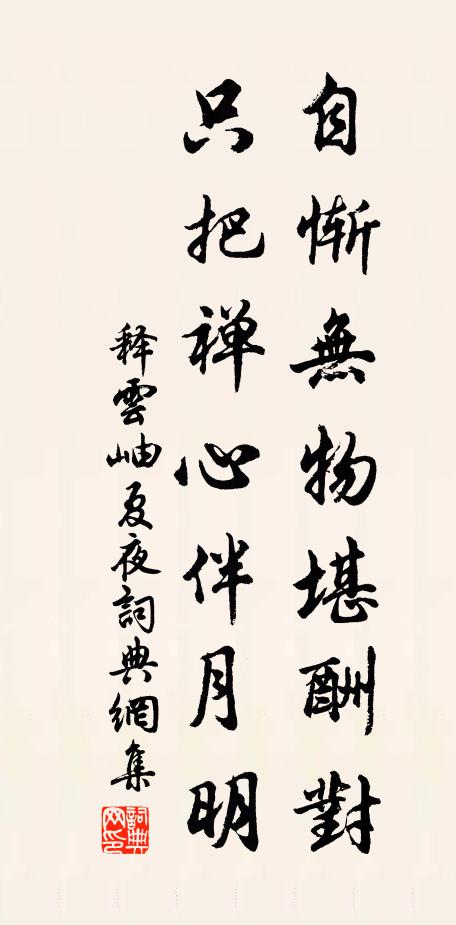 自惭無物堪酬對
只把禅心伴月明
释雲岫夏夜詞典網集
詞典网印